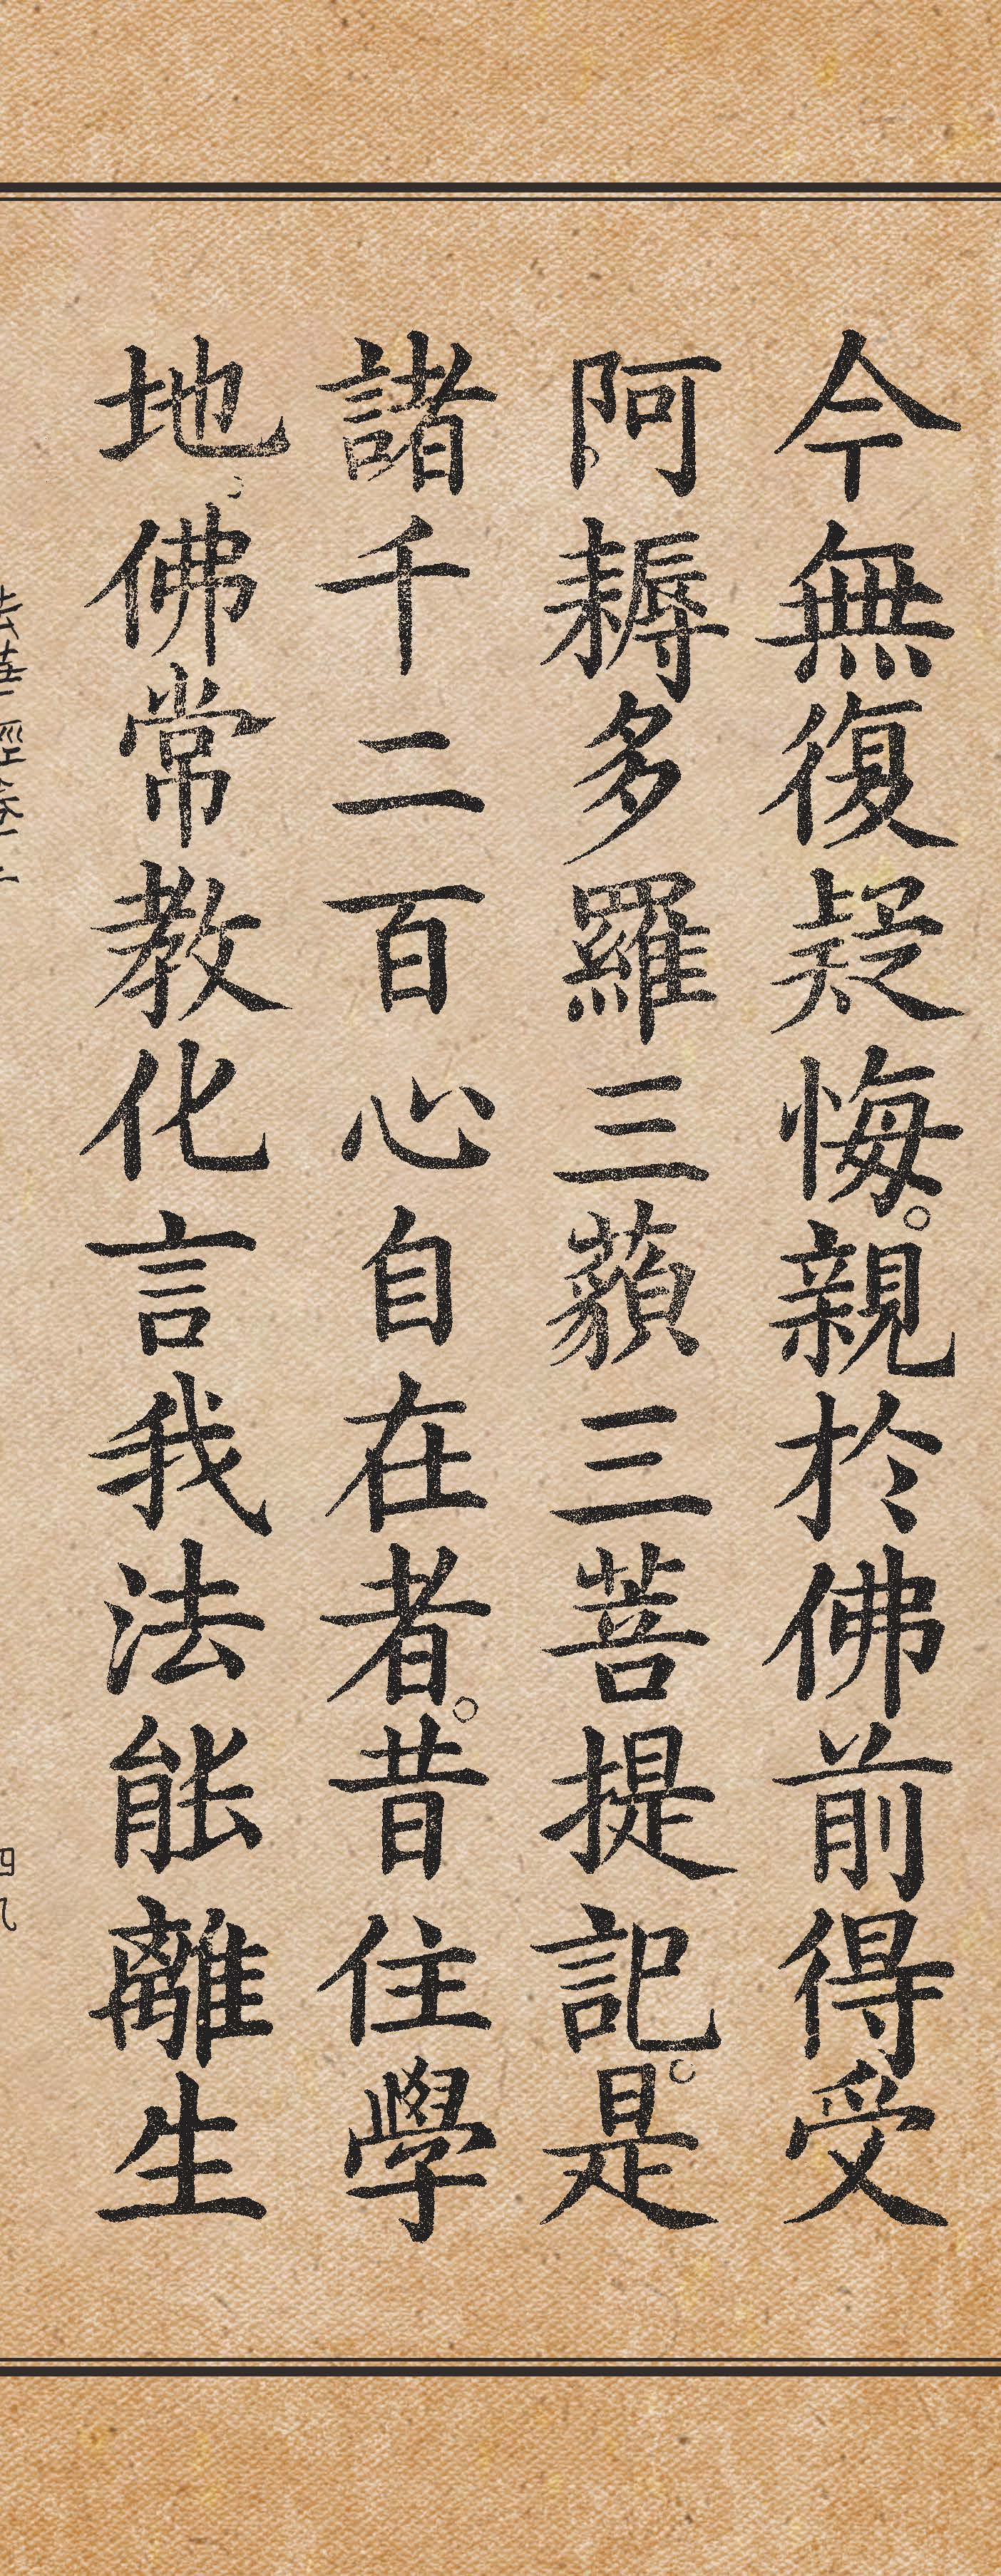 今無復疑悔。親於佛前得受
阿耨多羅三藐三菩提記。是
諸千二百心自在者。昔住學
地。佛常教化言我法能離生
法華經卷二
四九